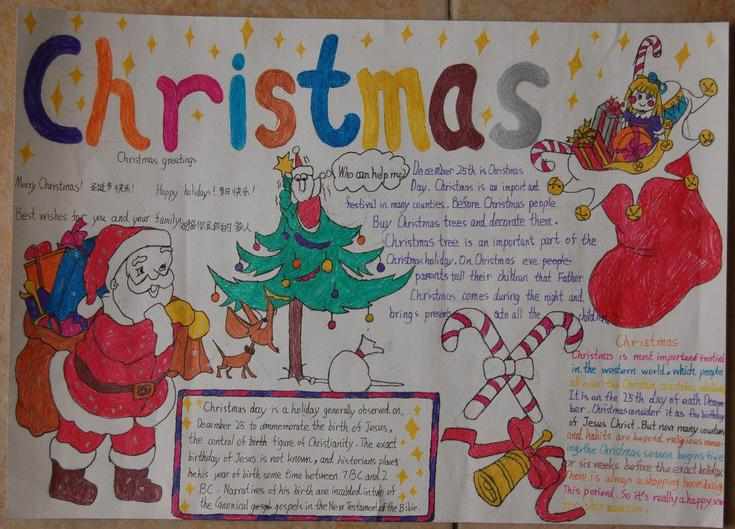 Christmas
Christmas greetings
Merry Christmas! 圣诞节快乐!
Happy holidays! 节日快乐!
Best wishes for you and your family
Who can help me?
December 25th is Christmas
Day. Christmas is an important
festival in many counties. Before Christmas people
Buy Christmas trees and decorate them.
Christmas tree is an important part of the
Christmas holiday. On Christmas eve people
parents tell their children that Father
Christmas comes during the night and
brings all the children
Christmas day is a holiday generally observed on
December 25 to commemorate the birth of Jesus,
the control of birth figure of Christianity. The exact
birthday of Jesus is not known, and historians place
his year of birth some time between 7BC and 2
BC. Narratives of his birth are included in two of
the Canonical gospels in the New Testament of the Bible
Christmas
Christmas is most important festival
in the western world. which people
It is on the 25th day of each Decem
ber. Christmas consider it as the birthday
of Jesus Christ. But now many countries
and habits are beyond religious mean
ing the Christmas season begins five
or six weeks before the exact holiday
There is always a shopping
This period. So it's really a happy